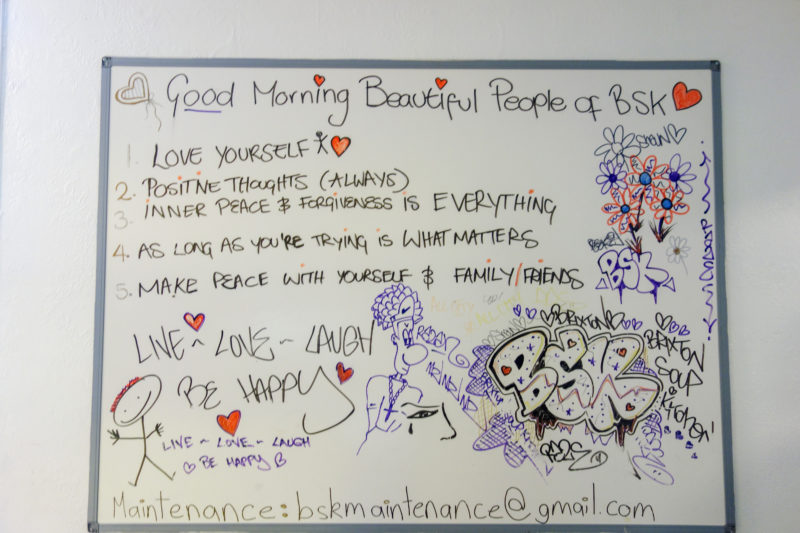 Good Morning Beautiful People of BSK
1. LOVE YOURSELF
2. POSITIVE THOUGHTS (ALWAYS)
3. INNER PEACE & FORGIVENESS IS EVERYTHING
4. AS LONG AS YOU'RE TRYING IS WHAT MATTERS
5. MAKE PEACE WITH YOURSELF & FAMILY/FRIENDS
LIVE ~ LOVE ~ LAUGH
BE HAPPY
LIVE ~ LOVE ~ LAUGH
BE HAPPY
BSK
BRIXTON
BSK
BRIXTON
SOUP
KITCHEN
Maintenance: bskmaintenance@gmail.com